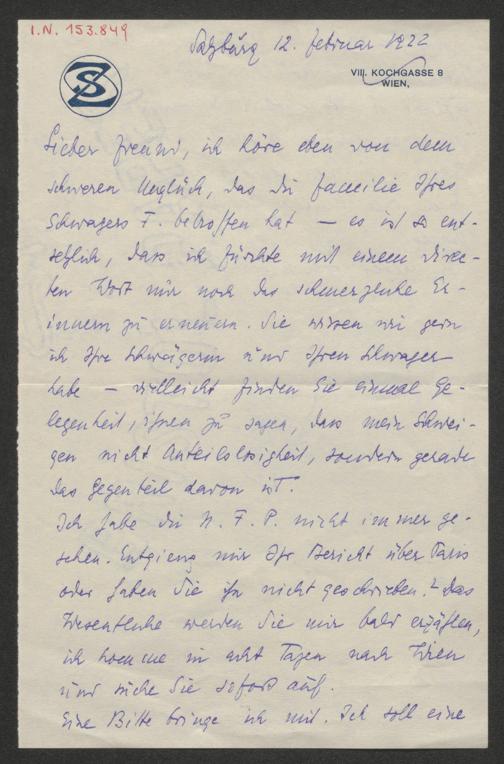 I.N. 153.849
Salzburg 12. Februar 1922
SZ
VIII. KOCHGASSE 8
WIEN,
Lieber Freund, ich höre eben von dem
schweren Unglück, das die Familie Ihres
Schwagers F. betroffen hat – es ist so ent-
setzlich, dass ich fürchte mit einem direc-
ten Wort nur noch das schmerzliche Er-
innern zu erneuern. Sie wissen wie gern
ich Ihre Schwägerin und Ihren Schwager
habe – vielleicht finden Sie einmal Ge-
legenheit, ihnen zu sagen, dass mein Schwei-
gen nicht Anteilslosigkeit, sondern gerade
das Gegenteil davon ist.
Ich habe die N. F. P. nicht immer ge-
sehen. Entgieng mir Ihr Bericht über Paris
oder haben Sie ihn nicht geschrieben? Das
Wesentliche werden Sie mir bald erzählen,
ich komme in acht Tagen nach Wien
und suche Sie sofort auf.
Eine Bitte bringe ich mit. Ich soll eine